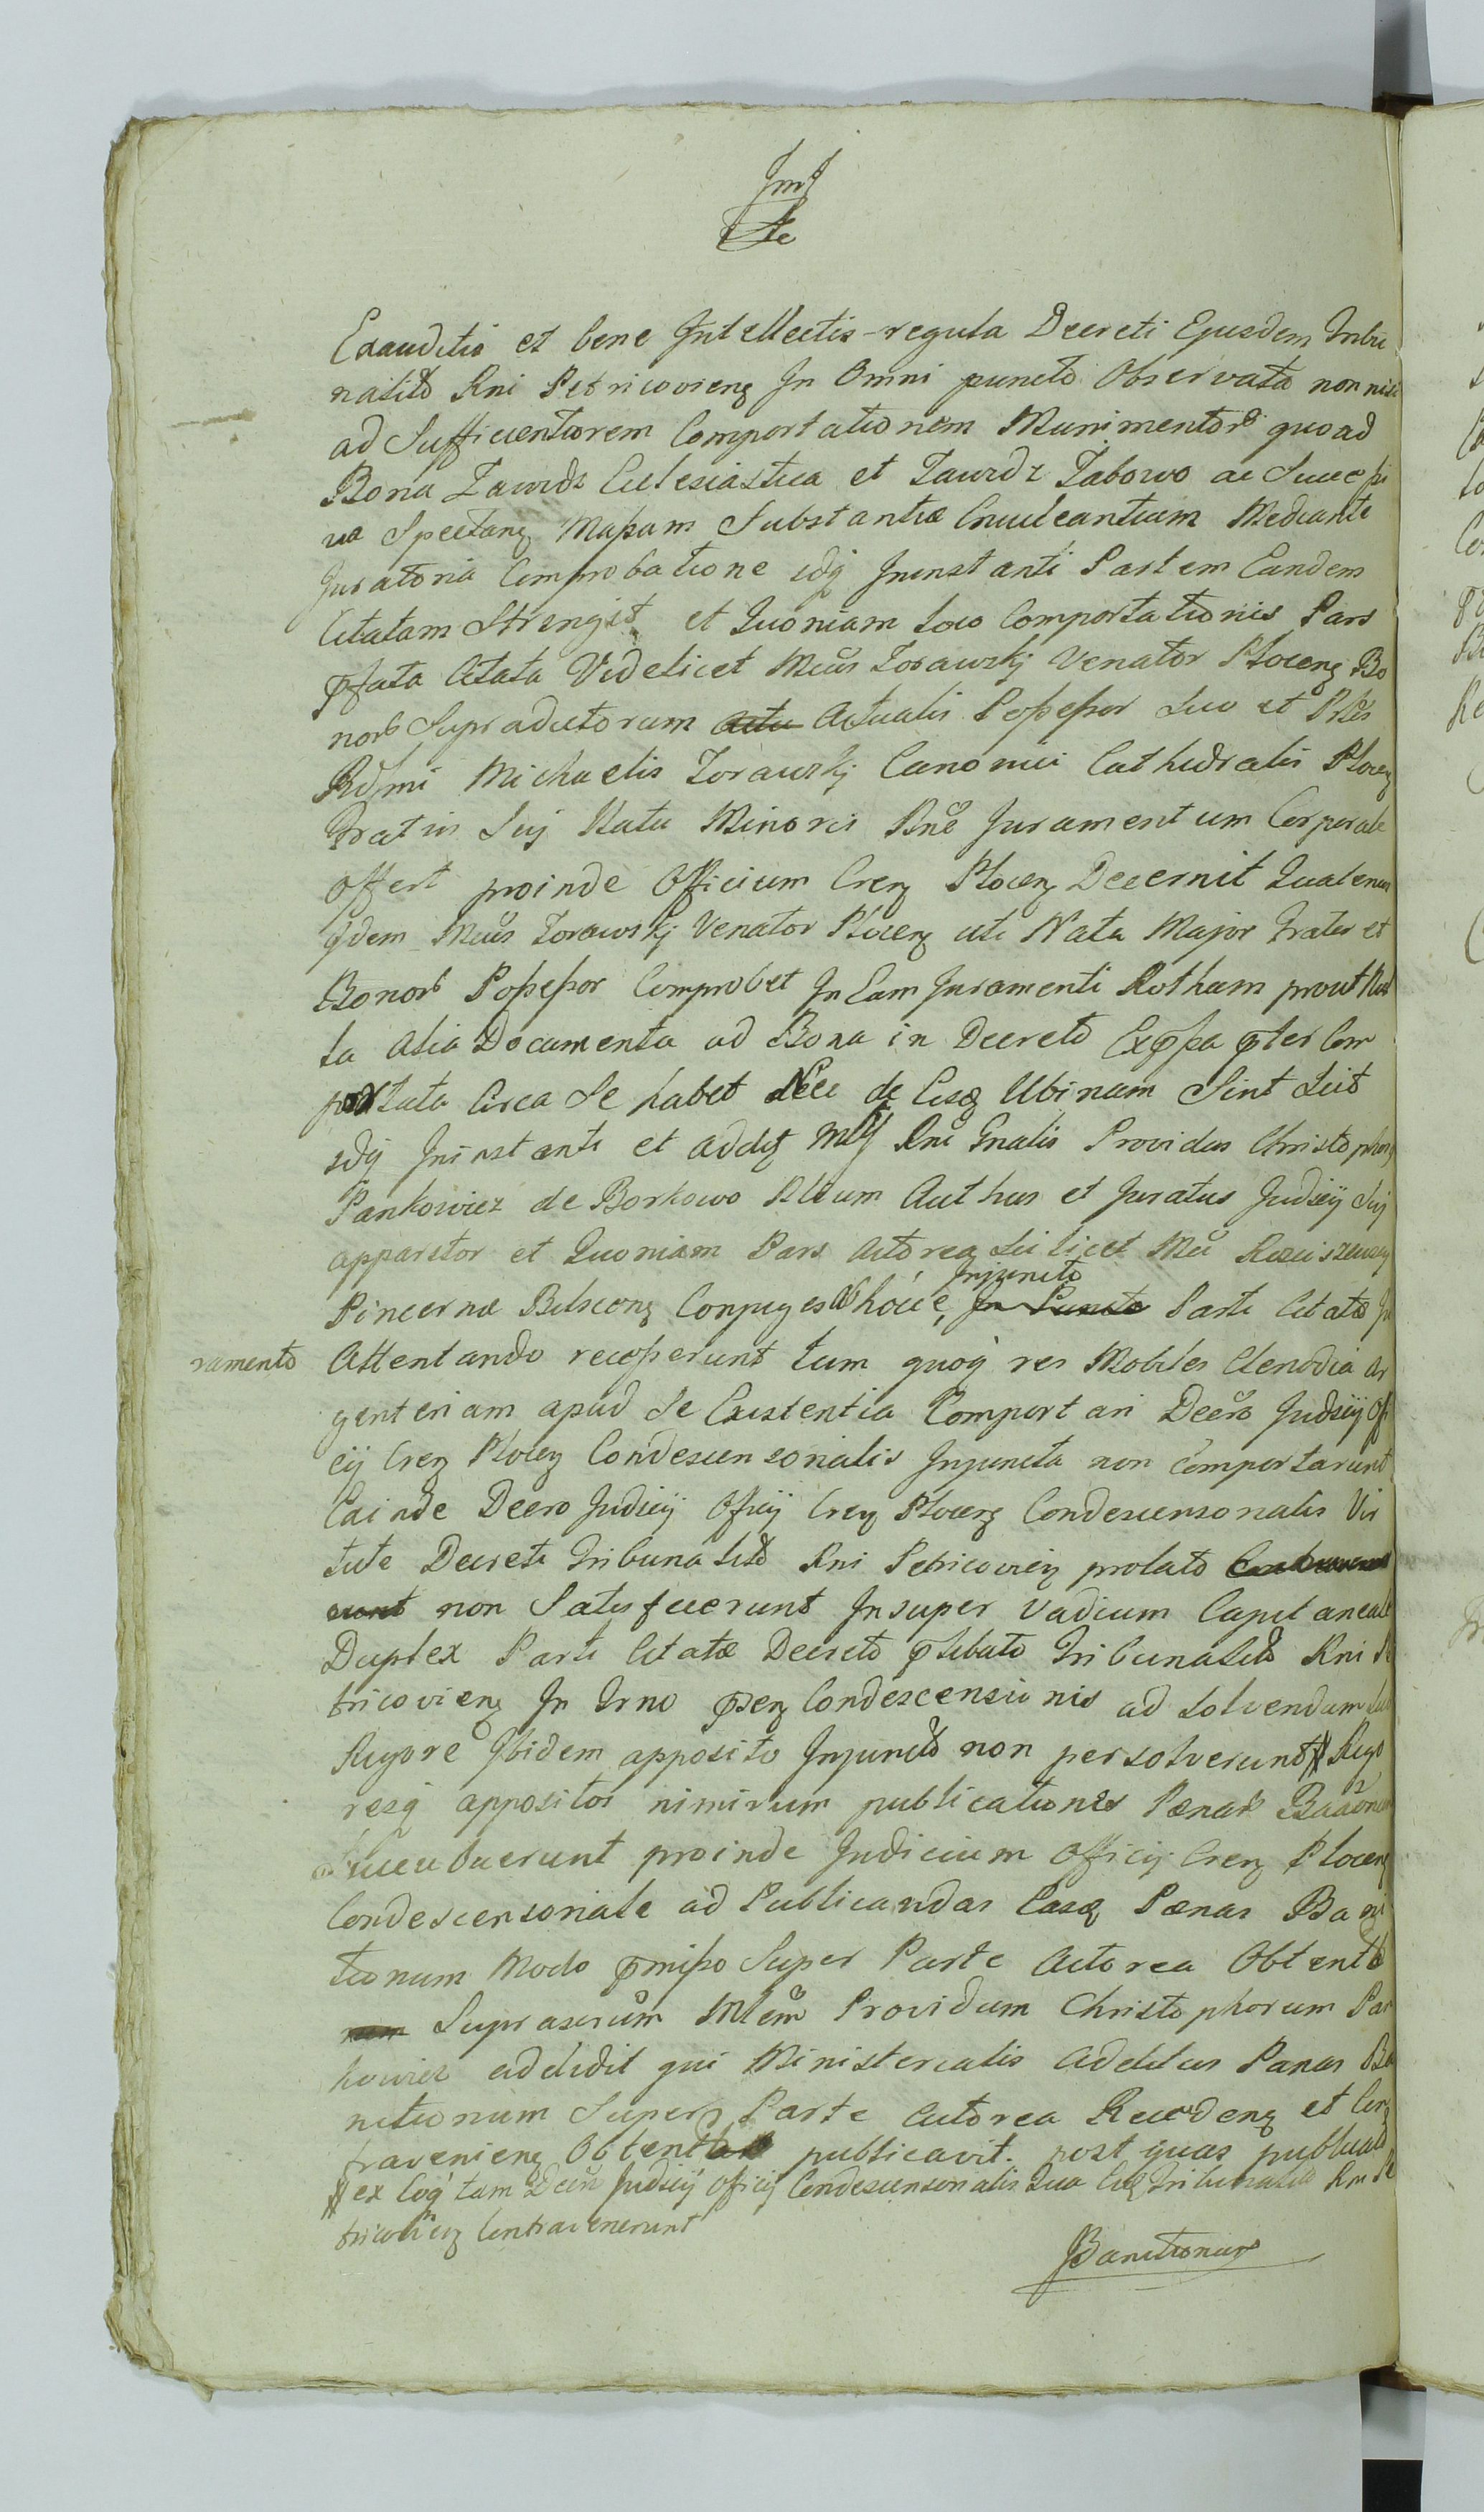 Exauditis et bene Intellectis regula Decreti Ejusdem Tribu
nalito Rni Petricovieng In Omni puncto Observata non nisi
ad Sufficientiorem Comportationem Munimentor quoad
Bona Zawidz Eclesiastica et Zawidz Zabowo ac Succeßi
va Spectang Maßam Substantiæ Enucleantium Mediante
Juratoria Comprobatione idq Ininstanti Partem Eandem
Citatam Stringit et Quoniam loco Comportationis Pars
pfata Citata Videlicet Mcus Zorawskj Venator Ploceng Bo
nor Supradictorum Actu Actualis Poßeßor Suo et
Rdmi Michaelis Zorawskj Canonici Cathedralis Ploceng
Fratris Sui Natu Minoris Nne Juramentum Corporale
Offert proinde Officium Creng Ploceng Decernit Quatenus
Idem Mcus Zorawskj Venator Ploceng uti Natu Major Frater et
Bonor Poßeßor Comprobet In Eam Juramenti Rotham prout Nul
la Alia Documenta ad Bona in Decreto Expßa pter Com
portata Circa Se habet Nec de Eisq Ubinam Sint Scit
idq Ininstanti et Addit Rni Gnalis Providus Christophorg
Pankowicz de Borkowo Rleum Authus et Juratus Judicij Sui
apparitor et Quoniam Pars Actorea Scilicet
Pincernæ Bilsceng Conjuges hocce, In Puncto Injuncto Parti Citatæ Ju
ramento Attentando recesserunt tum quoq res Mobiles Clenodia Ar
genteriam apud Se Existentia Comportari Decro Judicij Offi
cij Creng Ploceng Condescensorialis Injuncta non comportarunt
Eainde Decro Judicij Officij Creng Ploceng Condescensorialis Vir
tute Decreti Tribunalito Rni Petricovieng prolato
non Satisfecerunt Insuper Vadium Capitaneale
Duplex Parti Citatæ Decreto plibato Tribunalito Rni Pe
tricovieng In Trno pseng Condescensionis ad Solvendum Sub
Rigore Ibidem apposito Injuncto non persolverunt # Rigo
resq appositos nimirum publicationes Pænar Banonum
Succubuerunt proinde Judicium Officij Creng Ploceng
Condescensoriale ad Publicandas Easq Pænas Bani
tionum Modo pmißo Super Parte Actorea Obtento
Suprascrum Mlem Providum Christophorum Pan
kowicz addidit qui Ministerialis Additus Pænas Ba
nitionum Super Parte Actorea Recedeng et Con
traveniens Obtento publicavit. post quas publicato
# ex Coq tam Decro Judicij Officij Condescensorialis Qua Tribunalito Rni Pe
tricovieng Contravenerunt
Banitionum